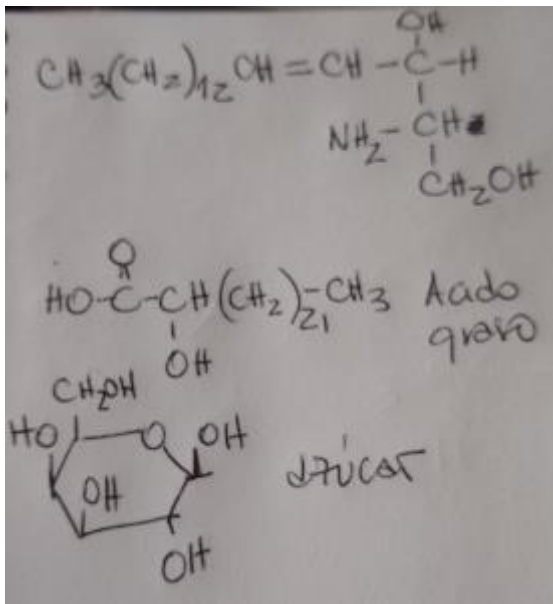 OH
CH3(CH2)12CH=CH-C-H
NH2-CH
CH2OH
O
HO-C-CH(CH2)21-CH3 Acido
graso
OH
CH2OH
HO O OH
OH azúcar
OH